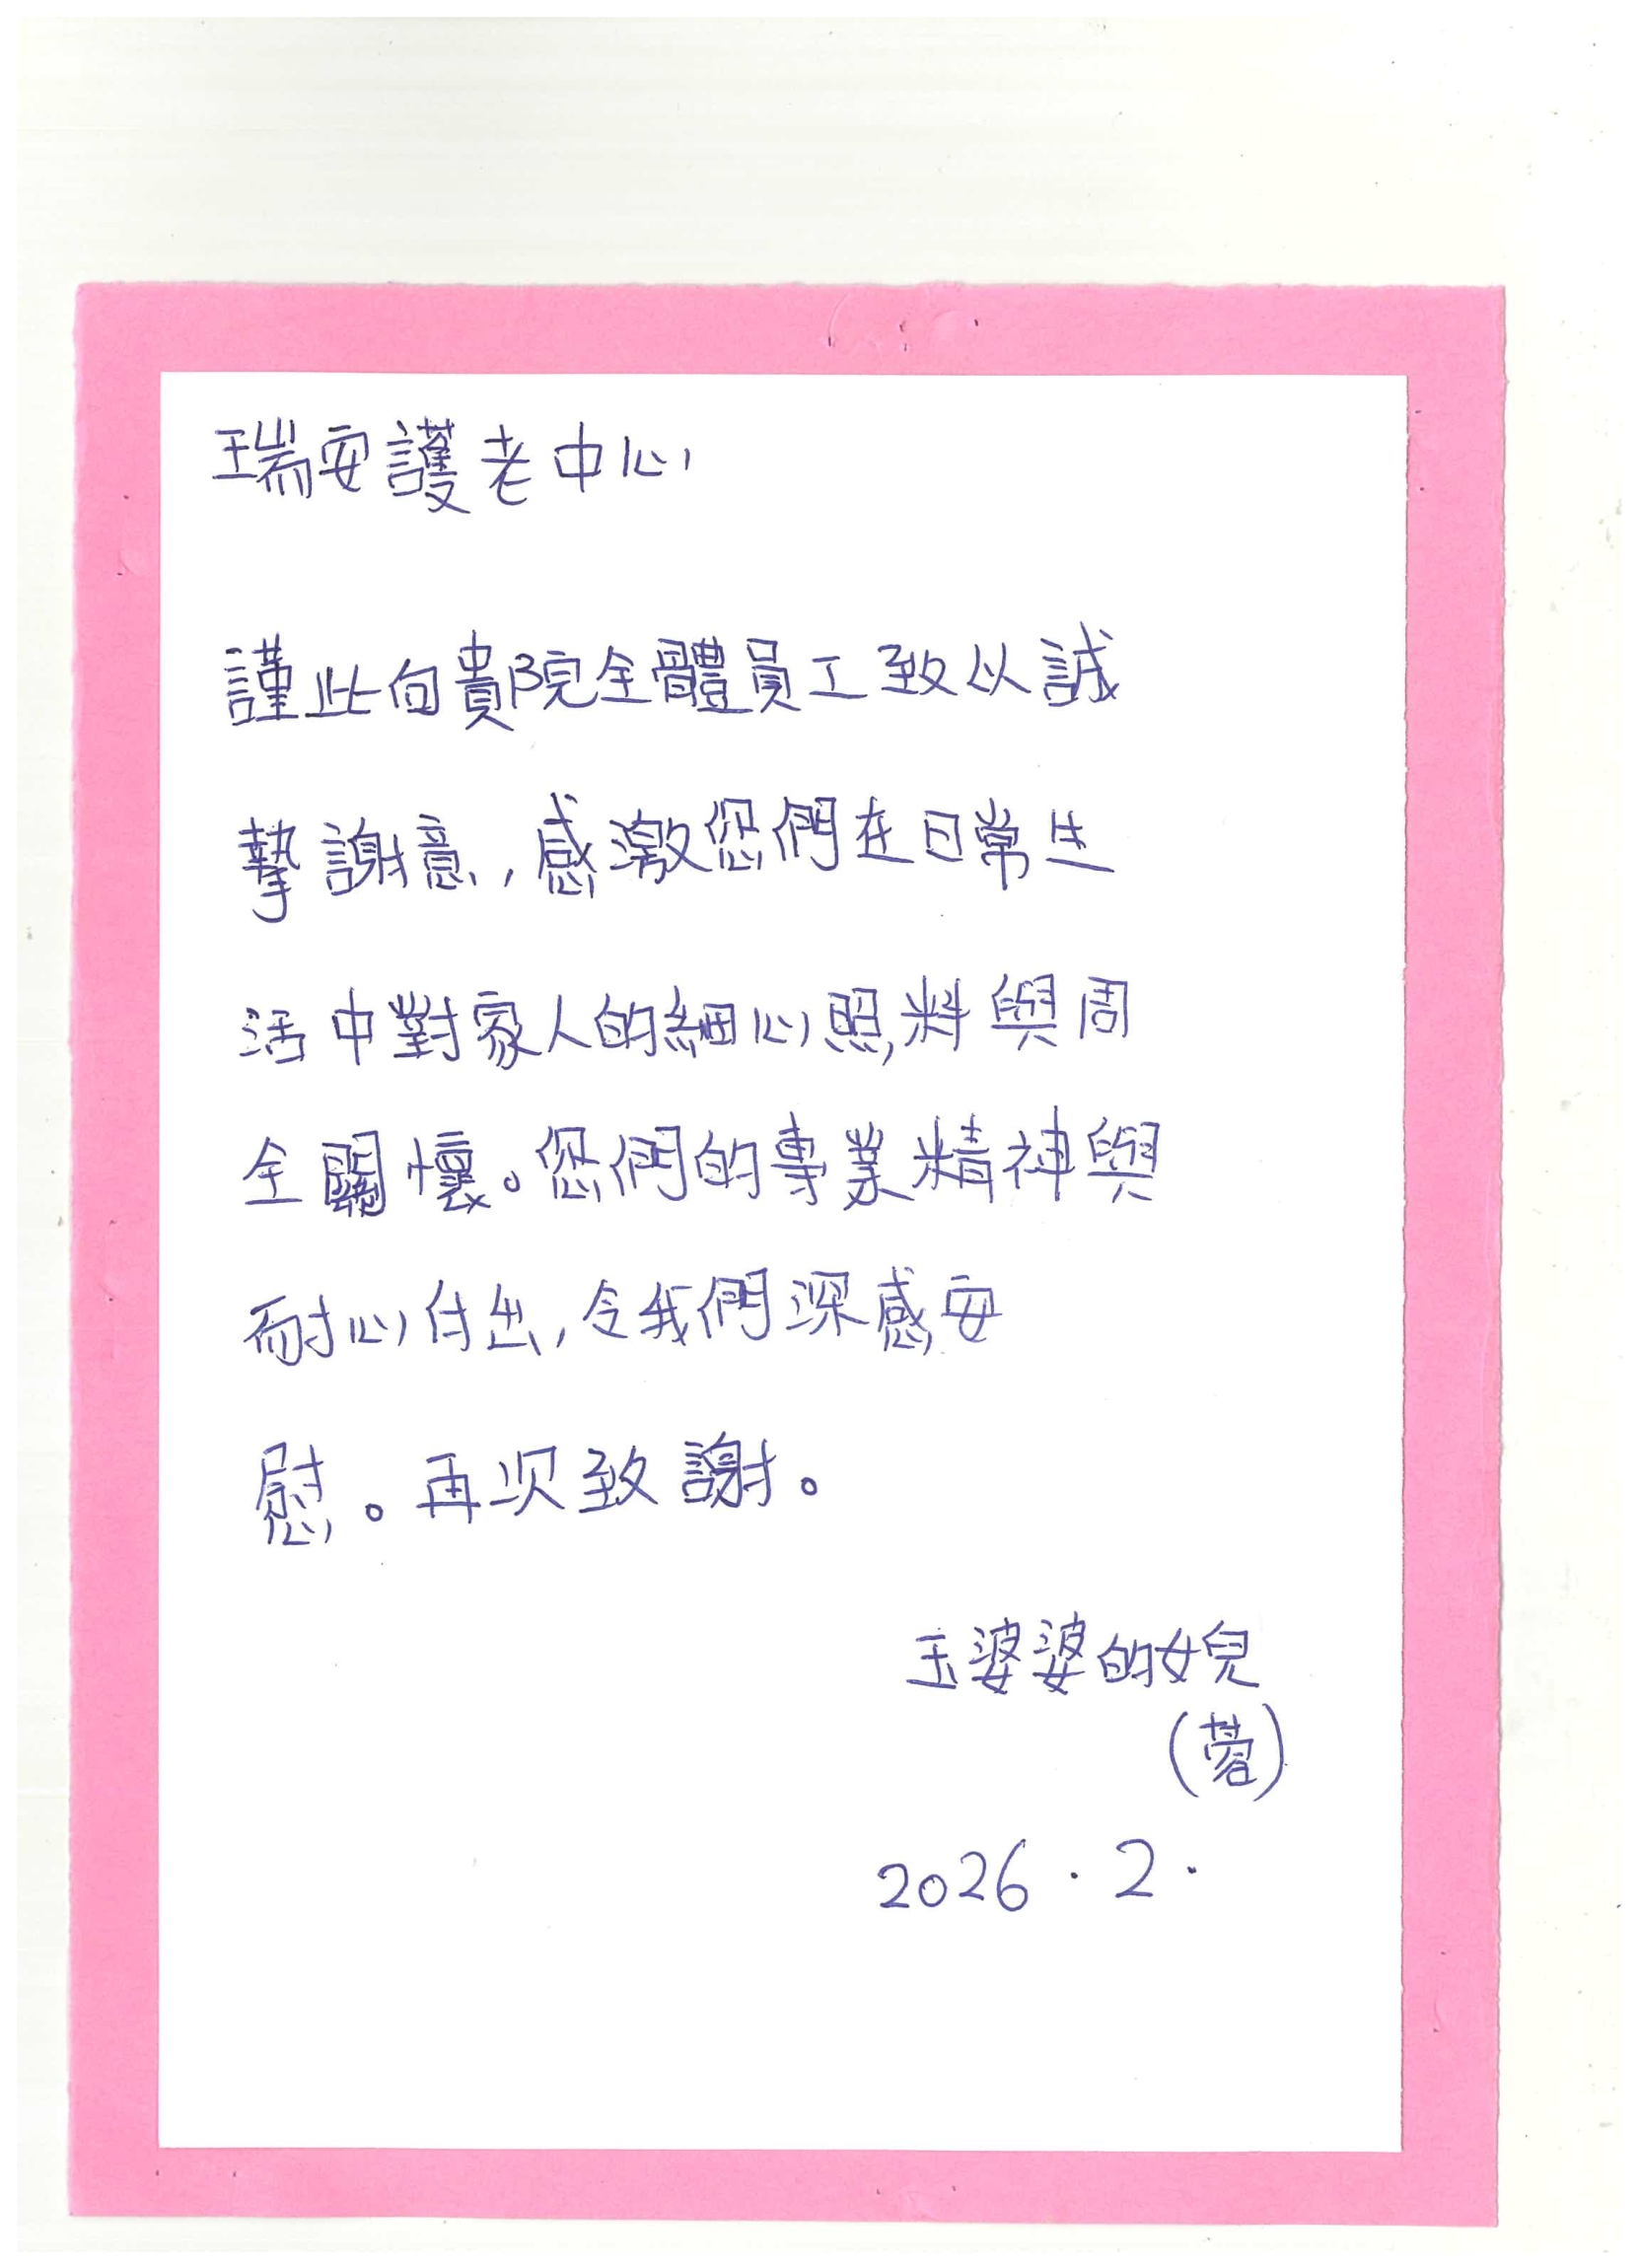 瑞安護老中心
謹此向貴院全體員工致以誠
摯謝意,感激您們在日常生
活中對家人的細心照料與周
全關懷。您們的專業精神與
耐心付出,令我們深感安
慰。再次致謝。
玉婆婆的女兒
(蓉)
2026.2.